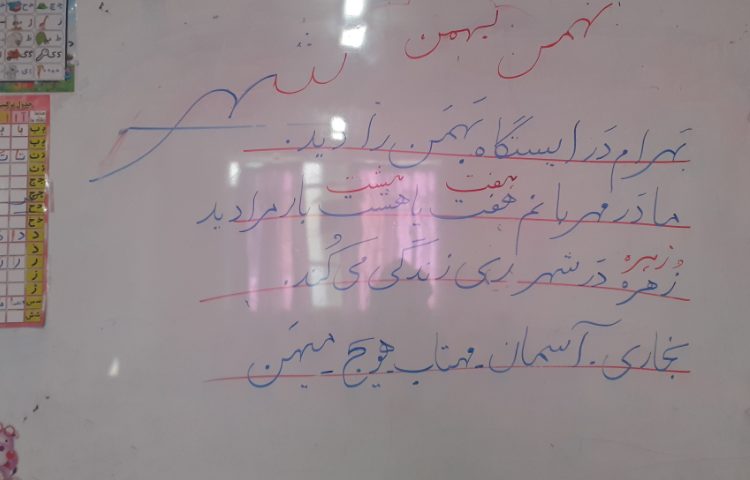 بهمن بهمن شهر
بَهرام دَر ایستگاه بَهمَن را دید.
هفت هشت
مادَر مهربانم هفت یا هشت بار مرا دید
زهره
زُهره دَر شهر ری زندگی می کُند.
بخاری. آسمان - مهتاب - هویج - میهَن